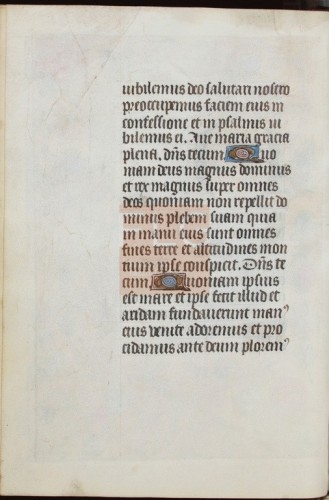 iubilemus deo salutari nostro
preoccupemus faciem eius in
confessione et in psalmis iu
bilemus ei. Aue maria gracia
plena, dñs tecum Quo
niam deus magnus dominus
et rex magnus super omnes
deos quoniam non repellit do
minus plebem suam quia
in manu eius sunt omnes
fines terre et altitudines mon
tium ipse conspicit. Dñs te
cum Quoniam ipsius
est mare et ipse fecit illud et
aridam fundauerunt manꝰ
eius venite adoremus et pro
cidamus ante deum ploremꝰ